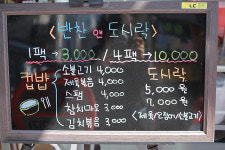 LC
<반찬 앤 도시락>
1팩→3,000 / 4팩→10,000
컵밥
소불고기 4,000
제육볶음 4,000
스팸 4,000
참치마요 3,000
김치볶음 3,000
도시락
5,000원
7,000원
<제육/오징어/소불고기>